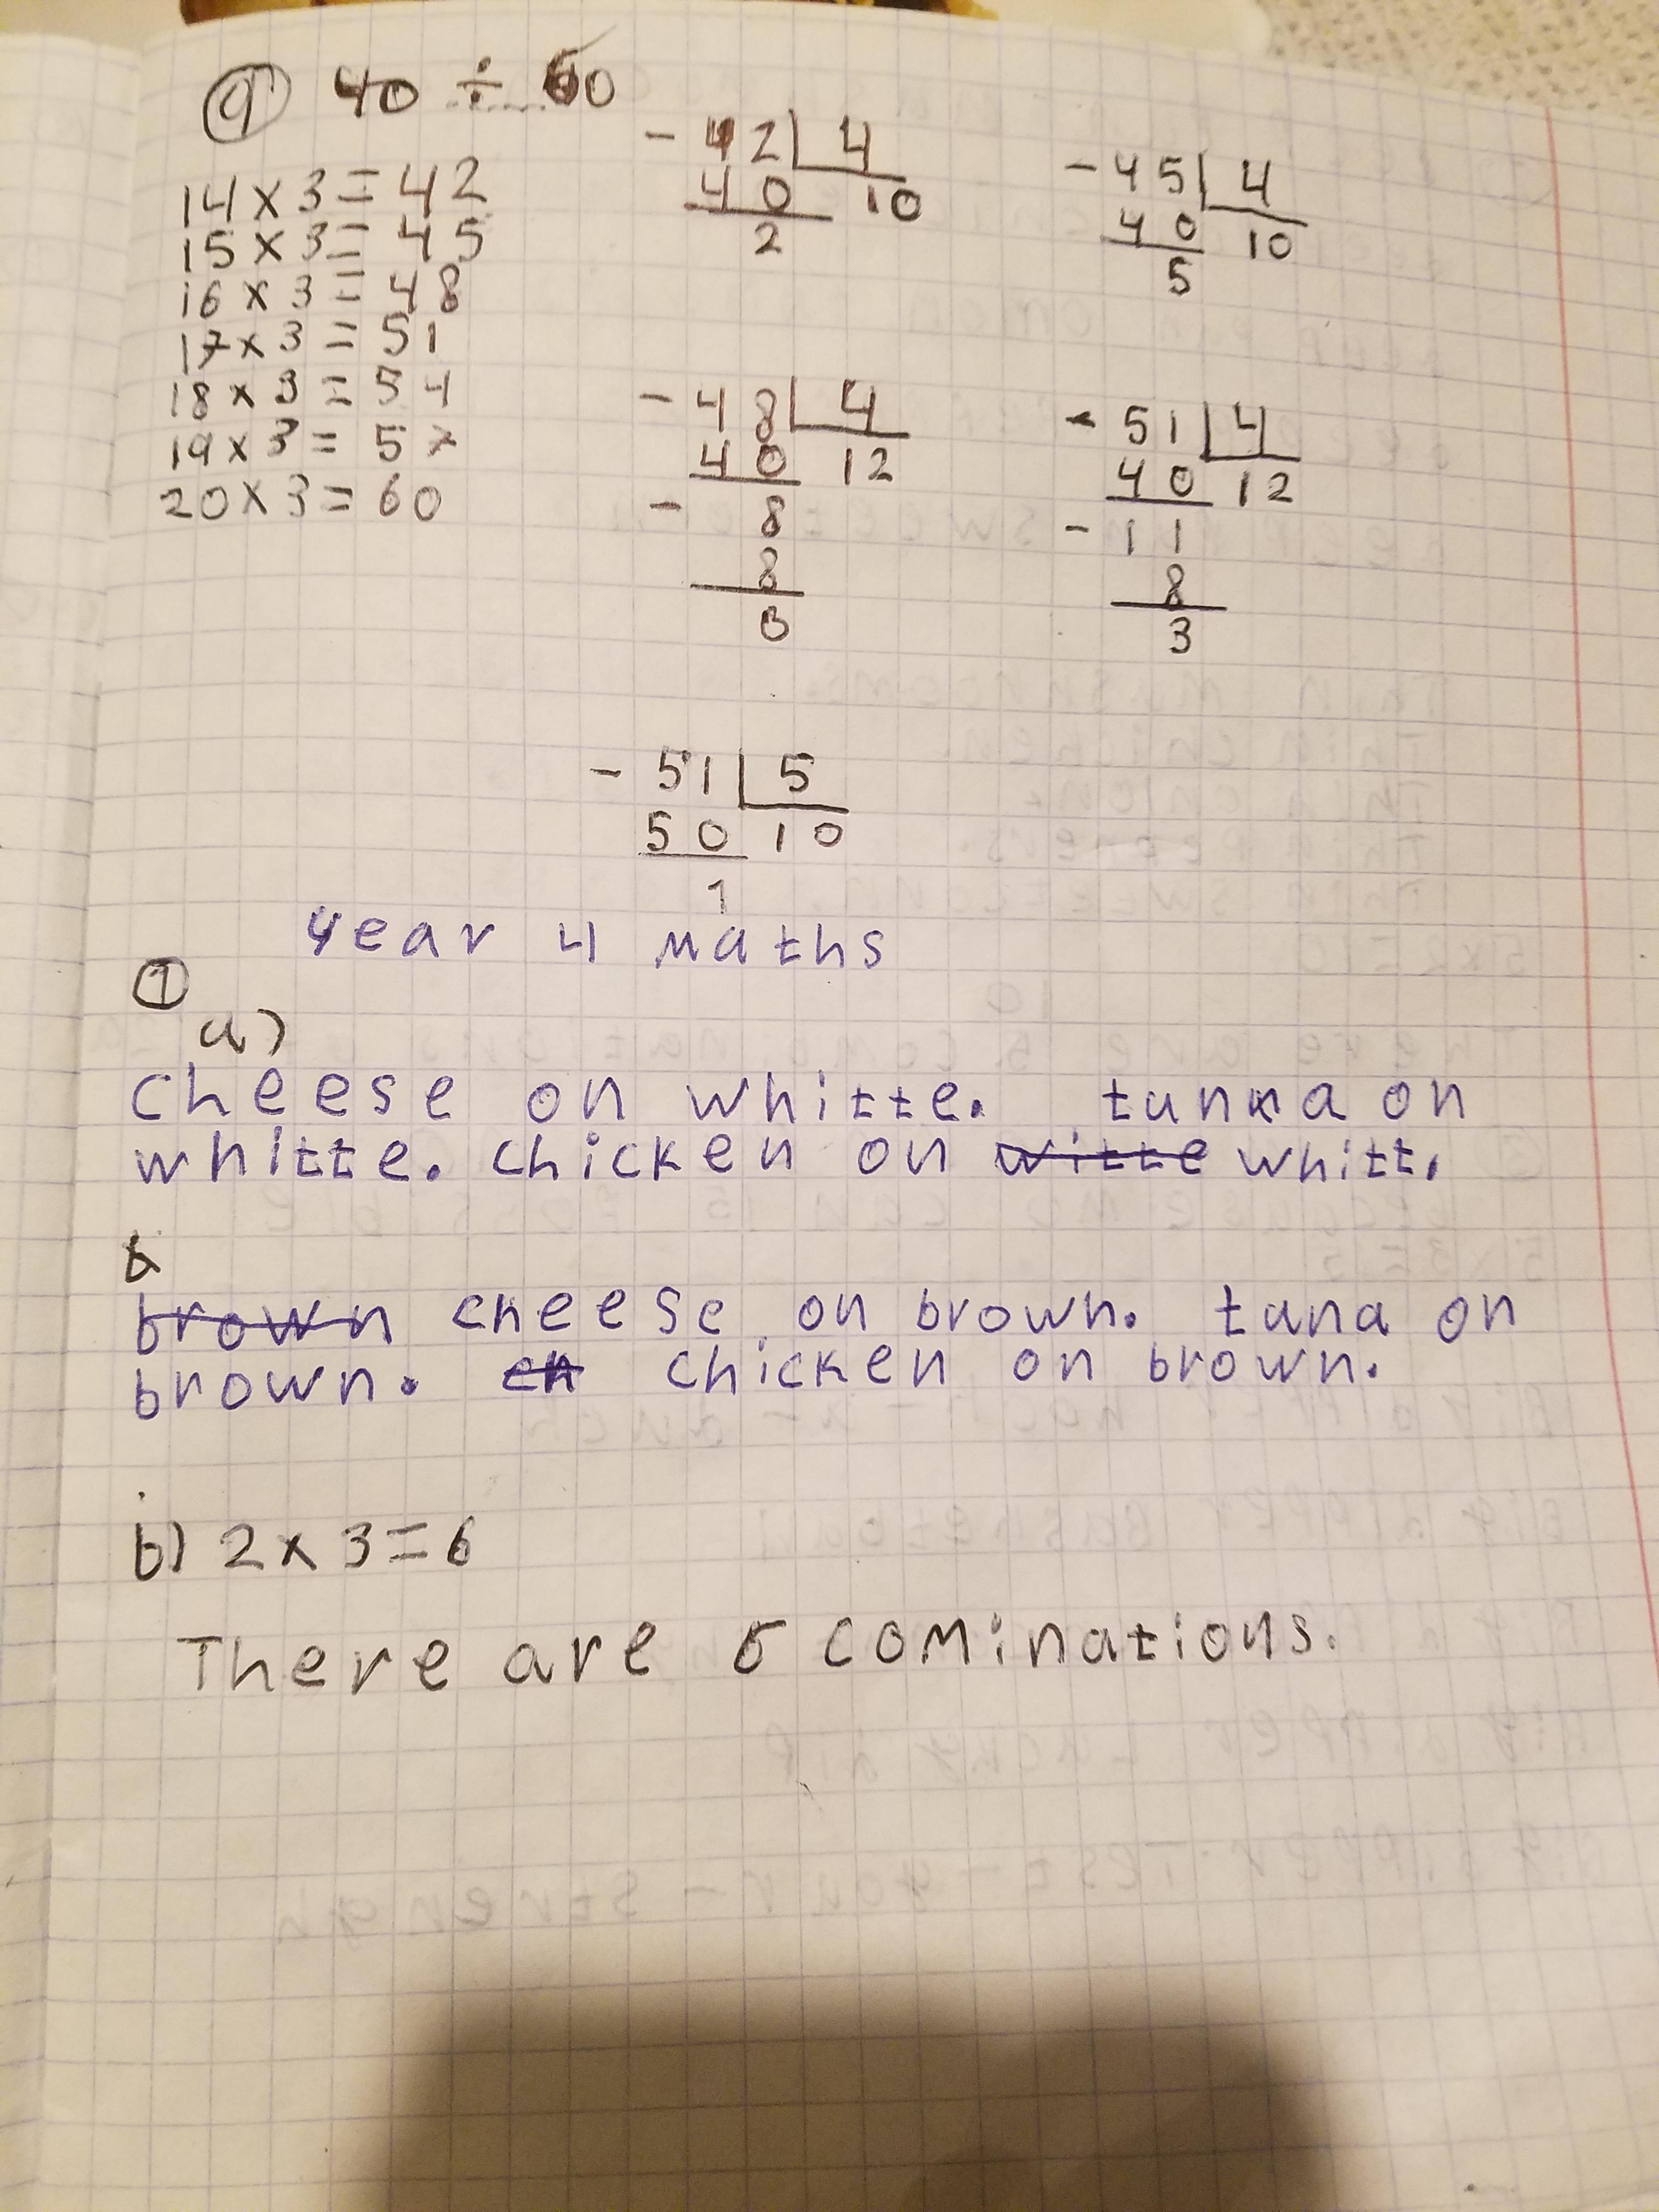 9 40 ÷ 60
14 x 3 = 42
15 x 3 = 45
16 x 3 = 48
17 x 3 = 51
18 x 3 = 54
19 x 3 = 57
20 x 3 = 60
- 42 4
40 10
2
- 45 4
40 10
5
- 48 4
40 12
- 8
8
0
- 51 4
40 12
- 11
8
3
- 51 5
50 10
1
year 4 maths
1
a)
cheese on whitte. tunna on
whitte. chicken on witte whitt.
b
brown cheese on brown. tuna on
brown. ch chicken on brown.
b) 2 x 3 = 6
There are 6 cominations.